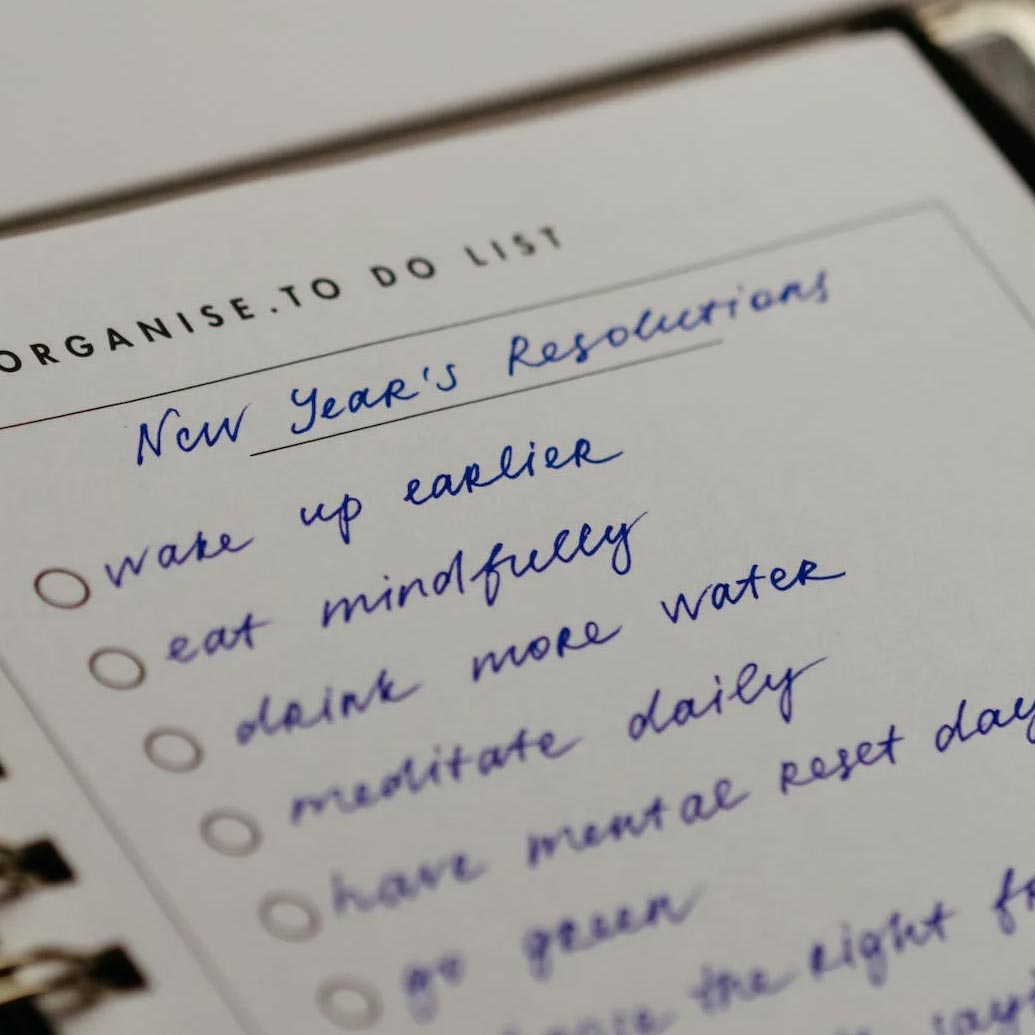 ORGANISE.TO DO LIST
New Year's Resolutions
wake up earlier
eat mindfully
drink more water
meditate daily
have mental reset day
go green
the right